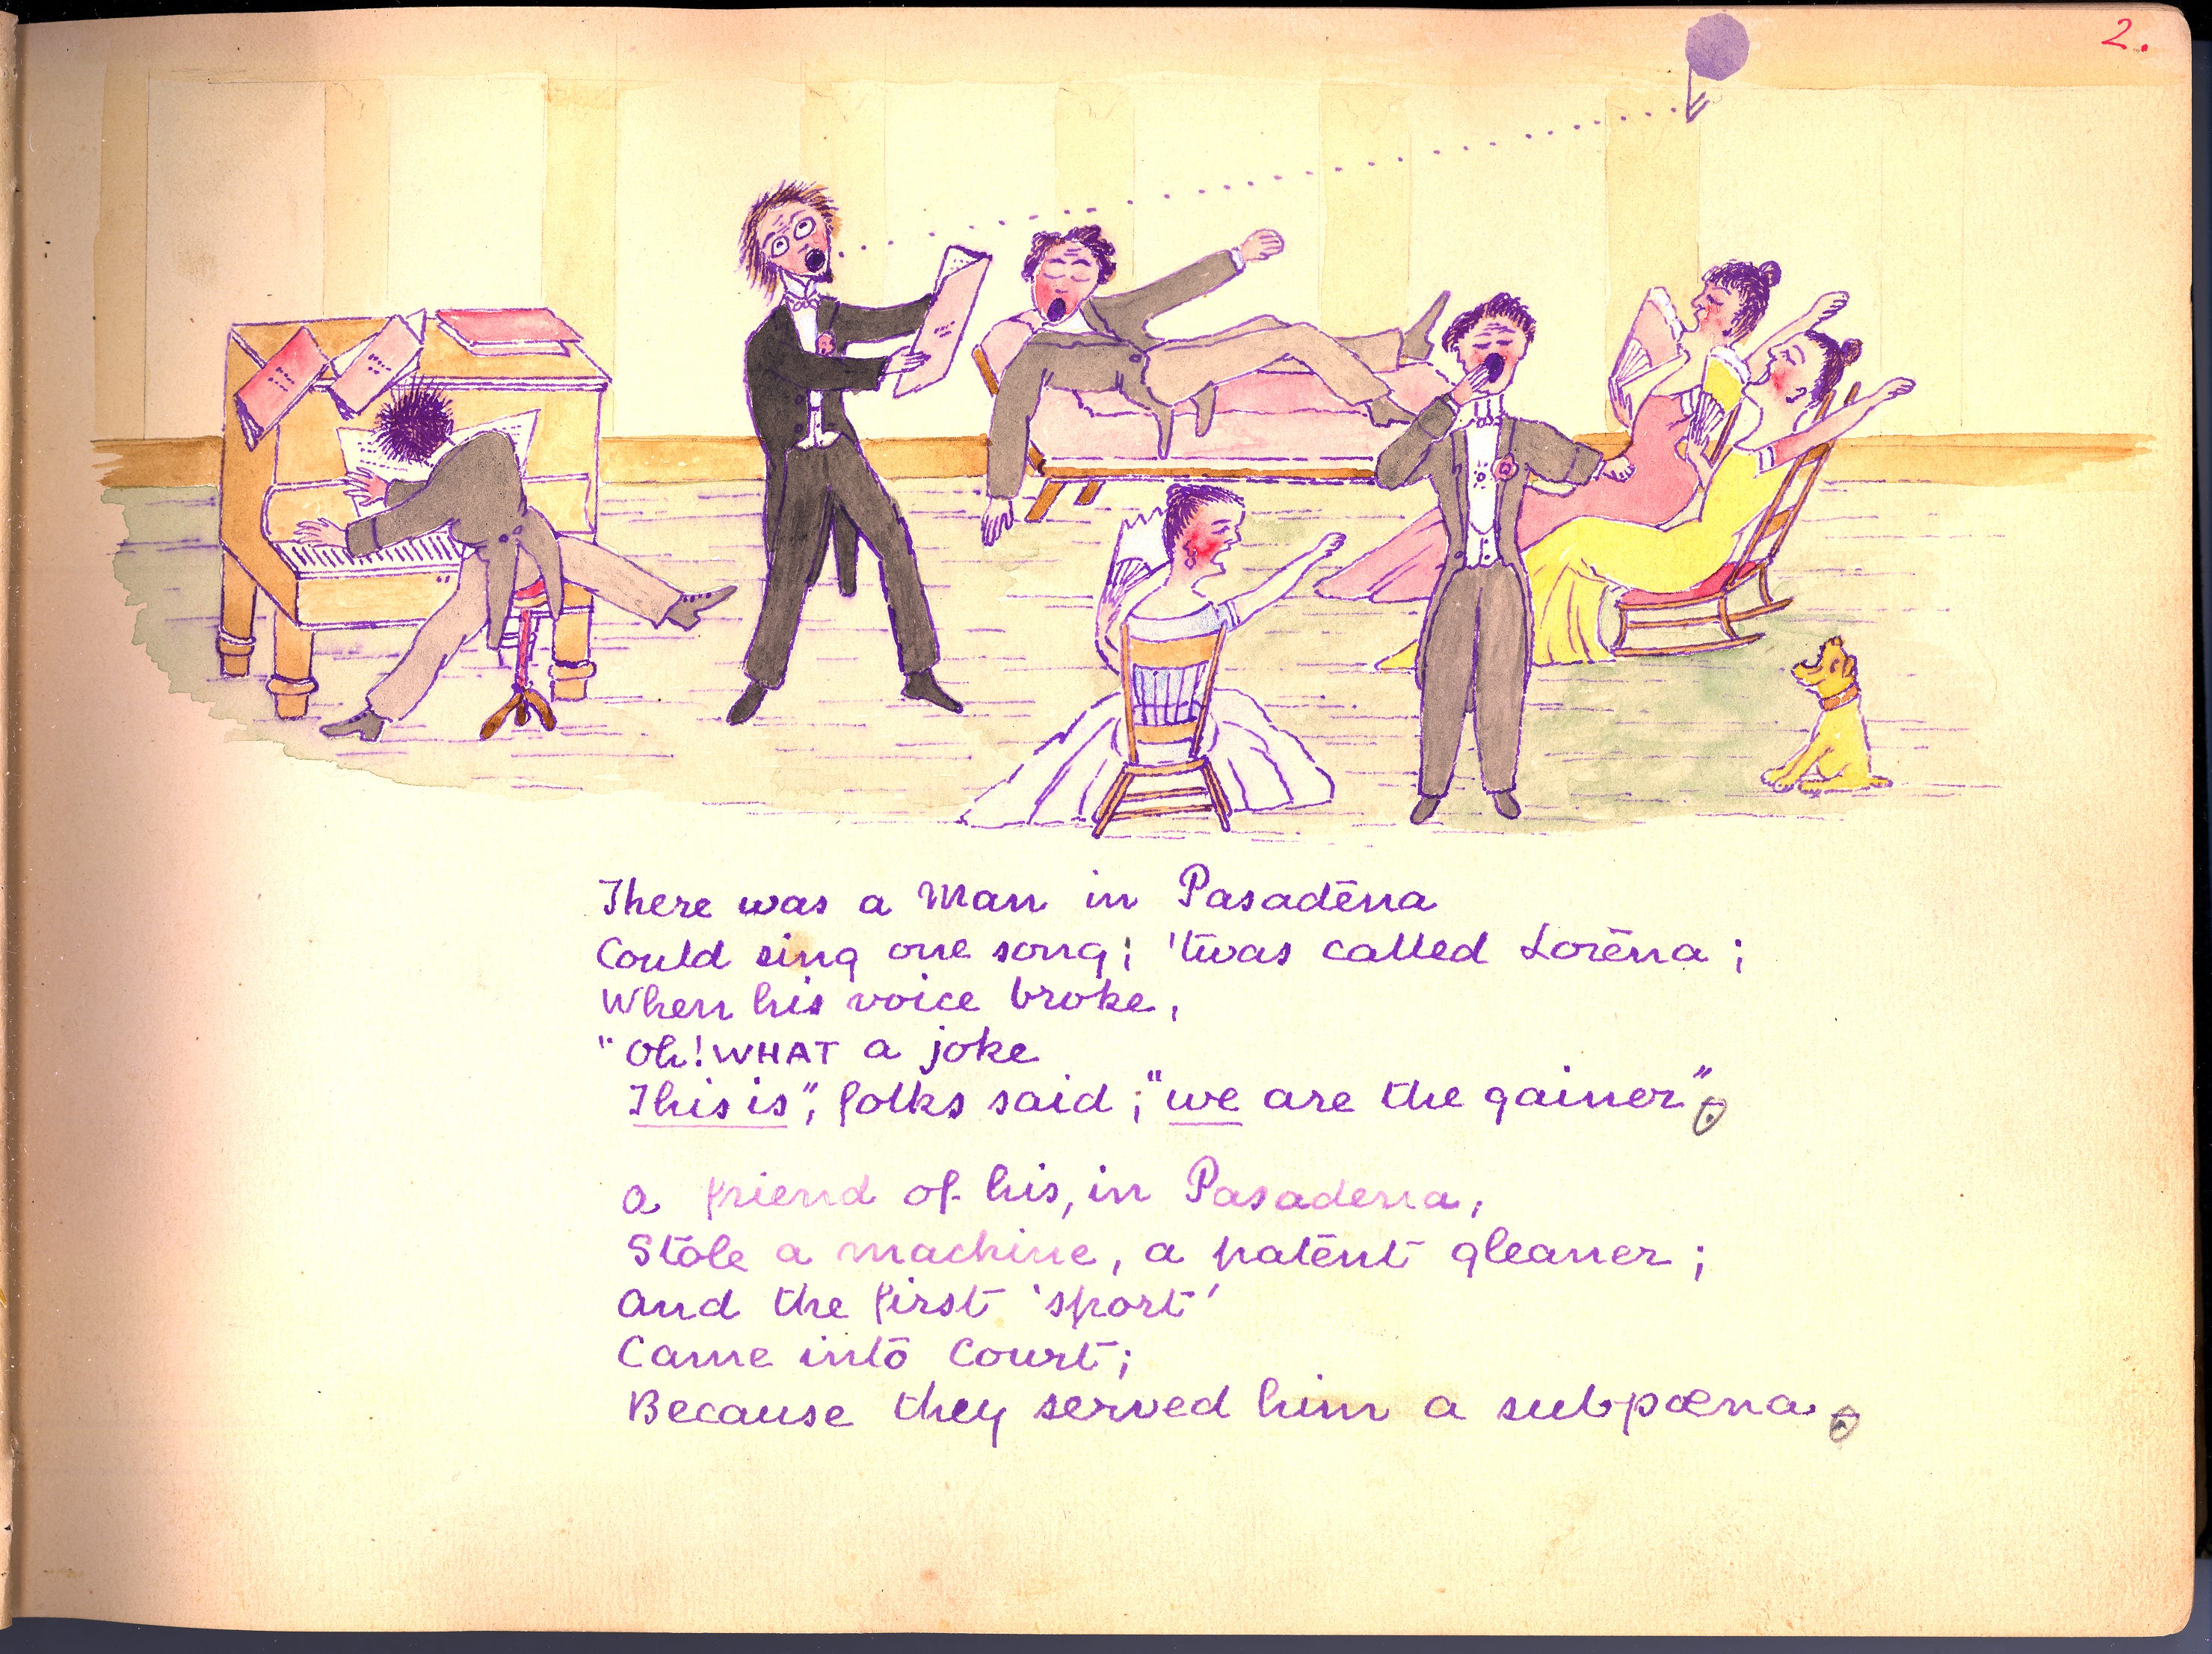 2.
There was a Man in Pasadēna
Could sing one song; 'twas called Lorēna;
When his voice broke,
"Oh! WHAT a joke
This is", folks said; "we are the gainer".
a friend of his, in Pasadena,
Stole a machine, a patent gleaner;
and the first 'sport'
Came into Court;
Because they served him a subpœna.